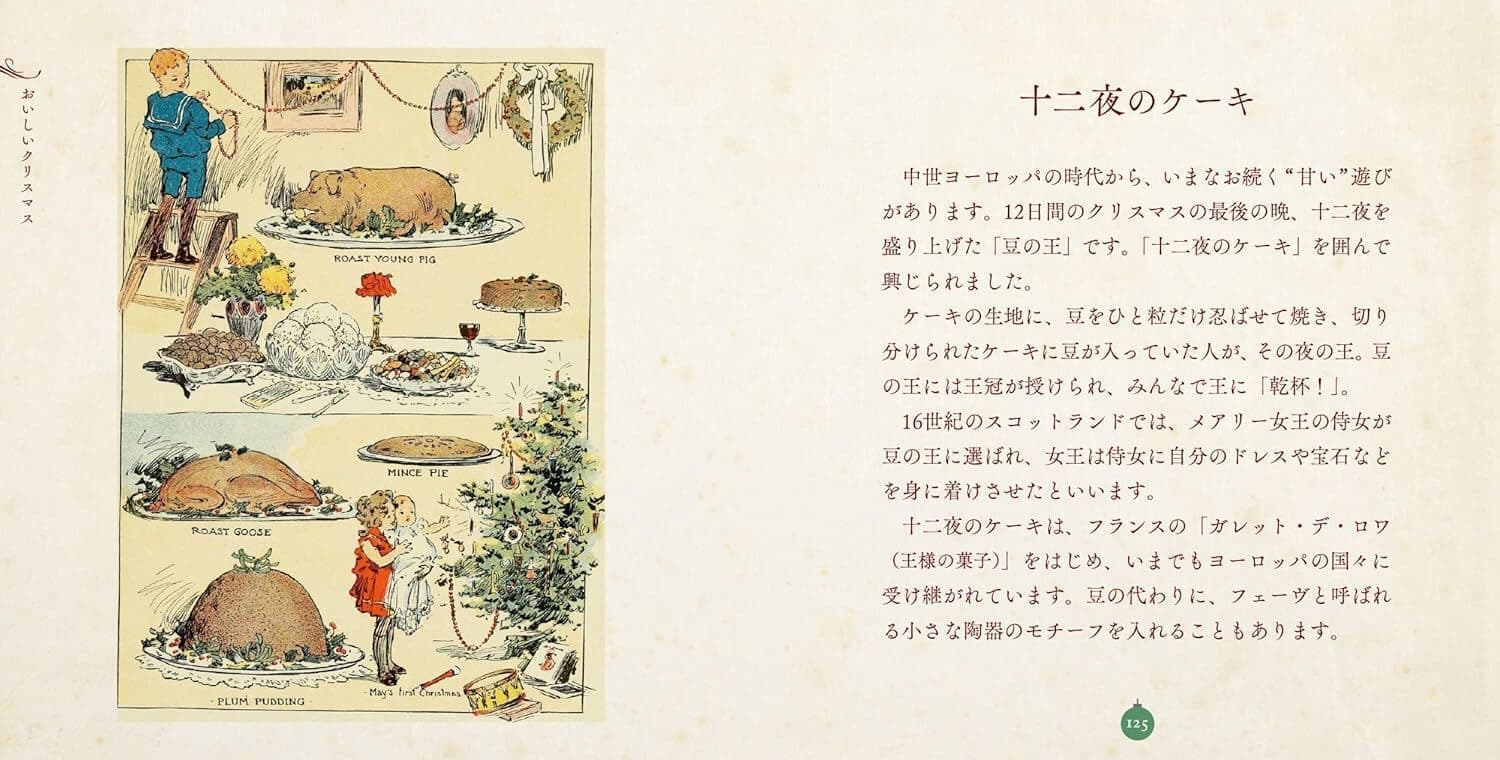 おいしいクリスマス
ROAST YOUNG PIG
MINCE PIE
ROAST GOOSE
· PLUM PUDDING ·
- May's First Christmas
十二夜のケーキ
中世ヨーロッパの時代から、いまなお続く“甘い”遊び
があります。12日間のクリスマスの最後の晩、十二夜を
盛り上げた「豆の王」です。「十二夜のケーキ」を囲んで
興じられました。
ケーキの生地に、豆をひと粒だけ忍ばせて焼き、切り
分けられたケーキに豆が入っていた人が、その夜の王。豆
の王には王冠が授けられ、みんなで王に「乾杯！」。
16世紀のスコットランドでは、メアリー女王の侍女が
豆の王に選ばれ、女王は侍女に自分のドレスや宝石など
を身に着けさせたといいます。
十二夜のケーキは、フランスの「ガレット・デ・ロワ
（王様の菓子）」をはじめ、いまでもヨーロッパの国々に
受け継がれています。豆の代わりに、フェーヴと呼ばれ
る小さな陶器のモチーフを入れることもあります。
125